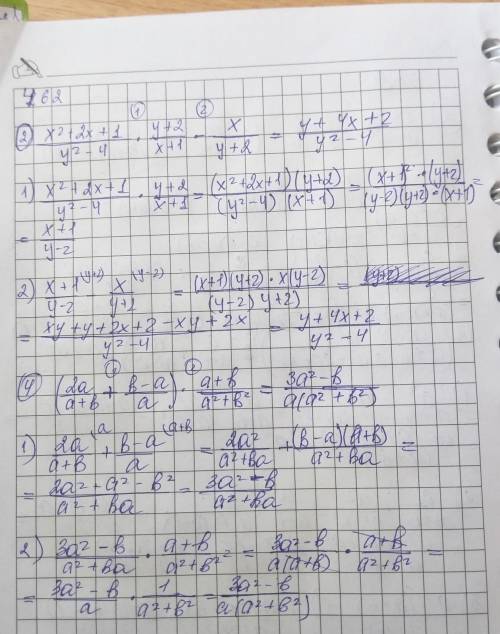 762
② (x²+2x+1)/(y²-4) · (y+2)/(x+1) - x/(y+2) = (y+4x+2)/(y²-4)
1) (x²+2x+1)/(y²-4) · (y+2)/(x+1) = ((x²+2x+1)(y+2))/((y²-4)(x+1)) = ((x+1)² · (y+2))/((y-2)(y+2)·(x+1)) =
= (x+1)/(y-2)
2) (x+1)/(y-2) (y+2) - x/(y+2) (y-2) = ((x+1)(y+2) · x(y-2))/((y-2) y+2) =
= (xy+y+2x+2-xy+2x)/(y²-4) = (y+4x+2)/(y²-4)
④ (2a/(a+b) + (b-a)/a) · (a+b)/(a²+b²) = (3a²-b)/(a(a²+b²))
1) 2a/(a+b) (a + (b-a)/a (a+b = 2a²/(a²+ba) + ((b-a)(a+b))/(a²+ba) =
= (2a²+a²-b²)/(a²+ba) = (3a²-b)/(a²+ba)
2) (3a²-b)/(a²+ba) · (a+b)/(a²+b²) = (3a²-b)/(a(a+b)) · (a+b)/(a²+b²) =
= (3a²-b)/a · 1/(a²+b²) = (3a²-b)/(a(a²+b²))